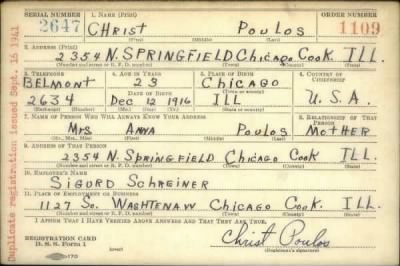 SERIAL NUMBER 1. NAME (Print) ORDER NUMBER
2647 CHRIST POULOS 1109
(First) (Middle) (Last)
2. ADDRESS (Print)
2354 N. SPRINGFIELD CHICAGO COOK ILL.
(Number and street or R. F. D. number) (Town) (County) (State)
3. TELEPHONE 4. AGE IN YEARS 5. PLACE OF BIRTH 6. COUNTRY OF CITIZENSHIP
BELMONT 28 CHICAGO
DATE OF BIRTH (Town or county)
2634 DEC 12 1916 ILL U.S.A.
(Exchange) (Number) (Mo.) (Day) (Yr.) (State or country)
7. NAME OF PERSON WHO WILL ALWAYS KNOW YOUR ADDRESS 8. RELATIONSHIP OF THAT PERSON
MRS. ANNA POULOS MOTHER
(Mr., Mrs., Miss) (First) (Middle) (Last)
9. ADDRESS OF THAT PERSON
2354 N. SPRINGFIELD CHICAGO COOK ILL.
(Number and street or R. F. D. number) (Town) (County) (State)
10. EMPLOYER'S NAME
SIGURD SCHREINER
11. PLACE OF EMPLOYMENT OR BUSINESS
1127 SO. WASHTENAW CHICAGO COOK ILL.
(Number and street or R. F. D. number) (Town) (County) (State)
I AFFIRM THAT I HAVE VERIFIED ABOVE ANSWERS AND THAT THEY ARE TRUE.
REGISTRATION CARD
D. S. S. Form 1
Christ Poulos
(Registrant's signature)
Duplicate registration issued Sept. 16 1941